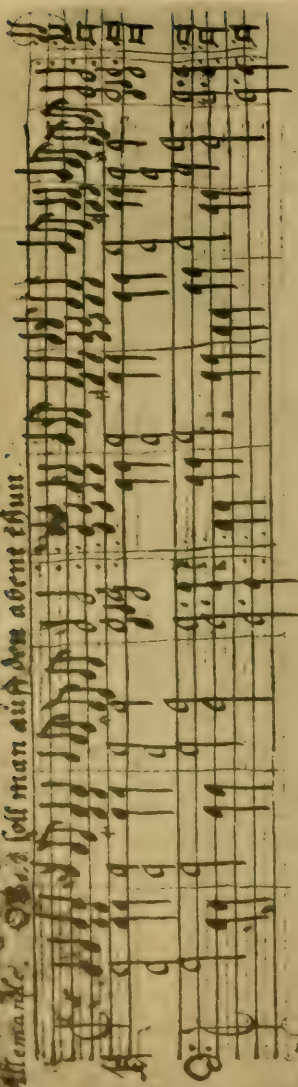 Allemande. Was soll man auff den abent thun